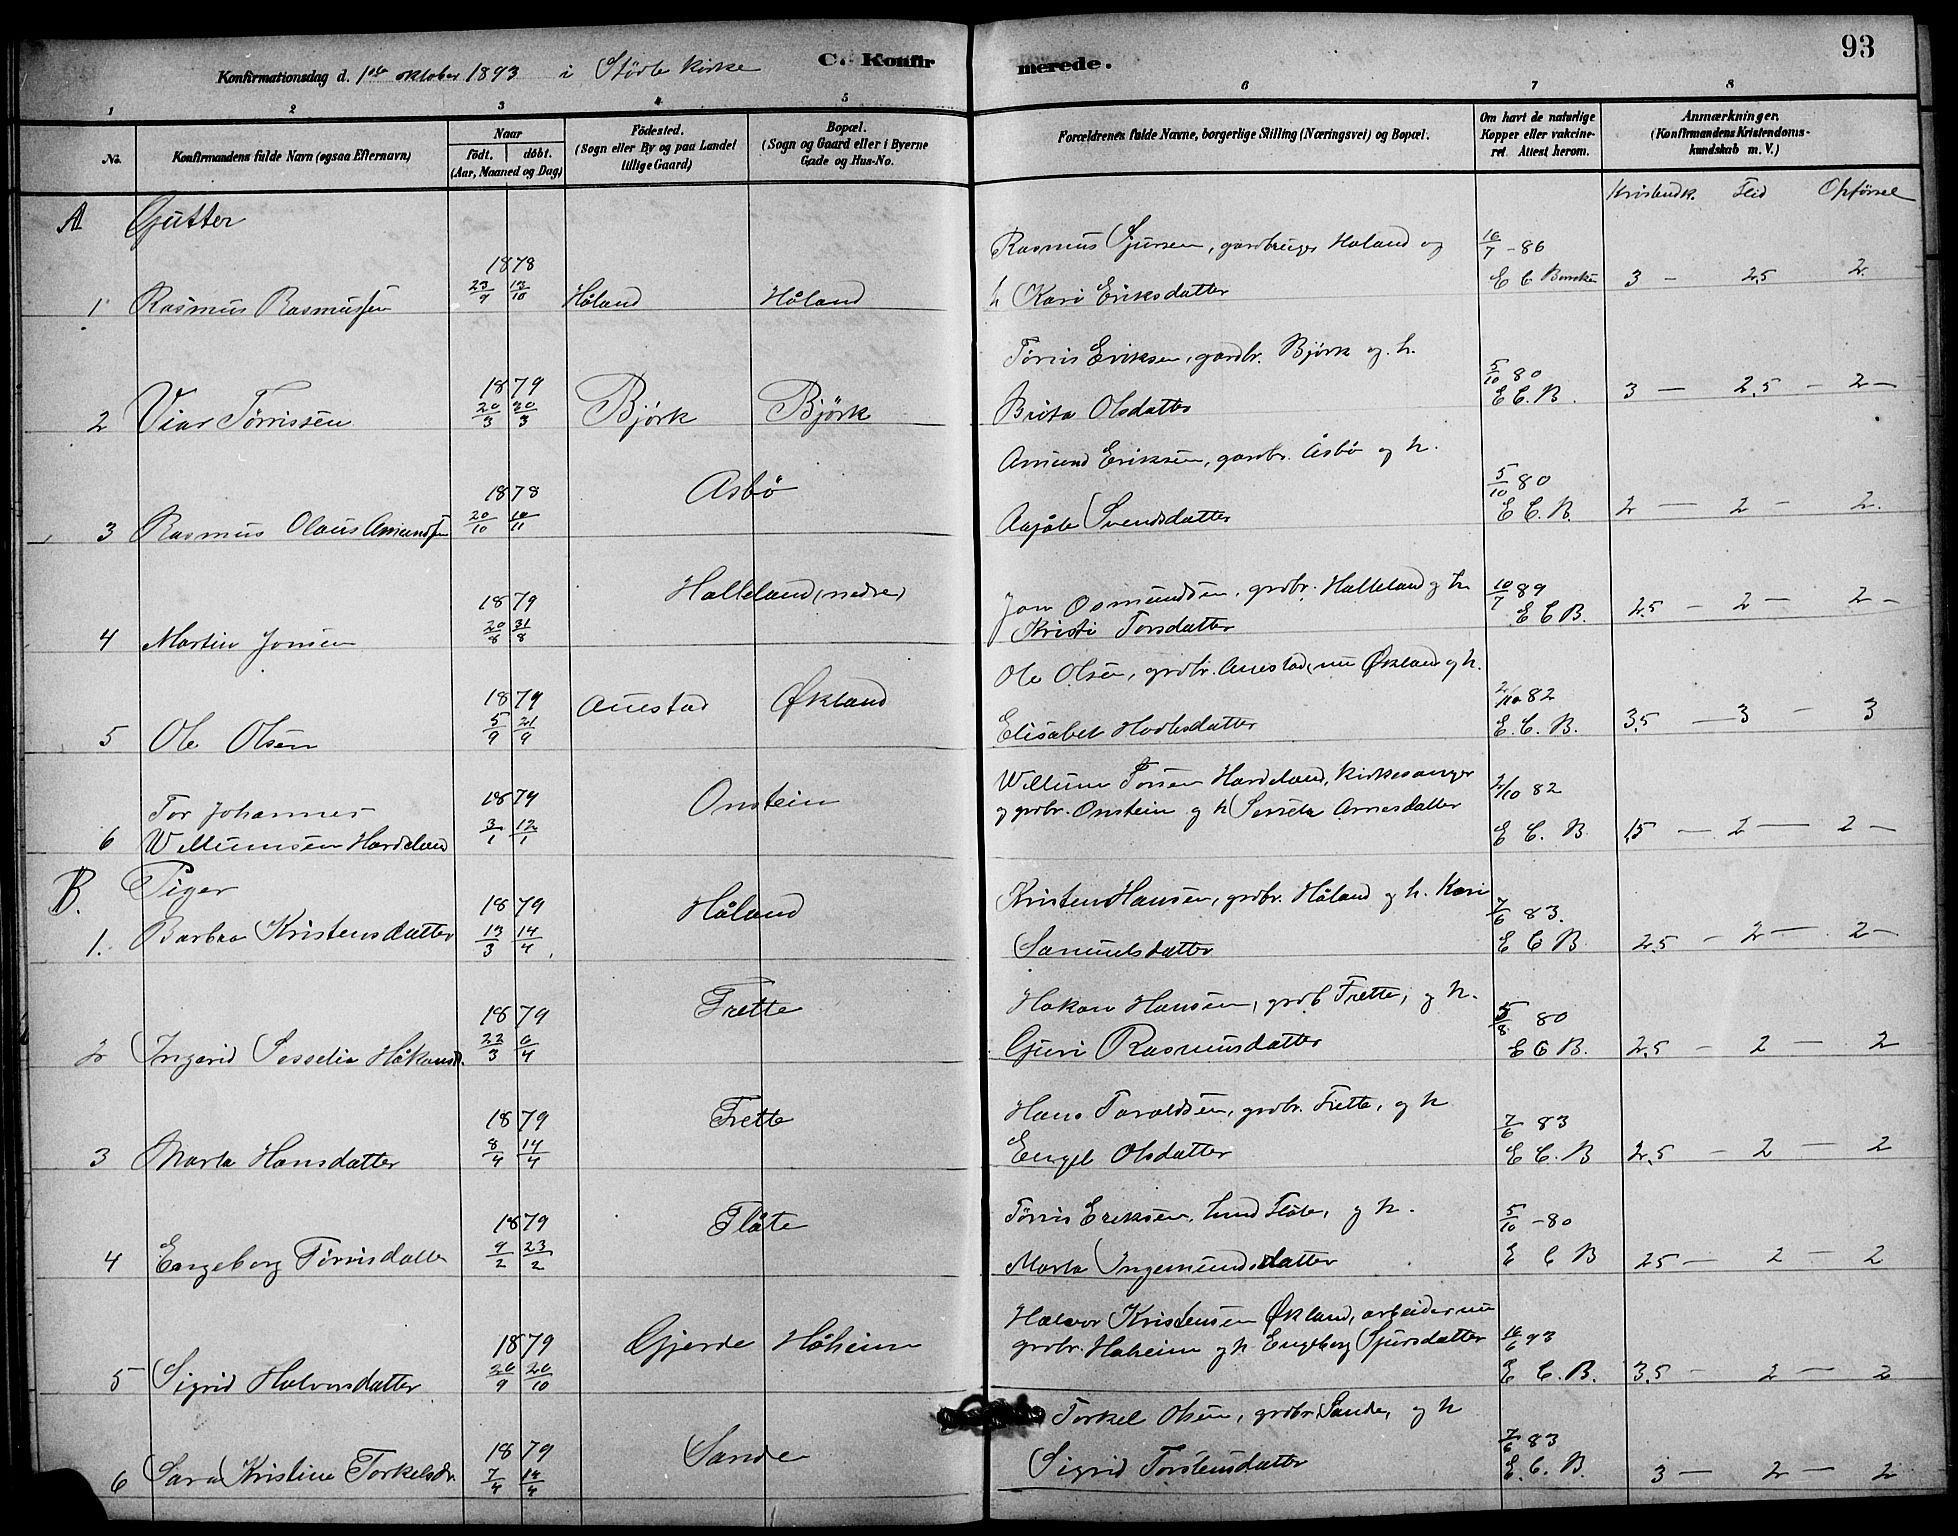 93
Konfirmationsdag d. 1ste oktober 1893 i Stördö Kirke
C. Konfirmerede.
1 2 3 4 5 6 7 8
No.
Konfirmandens fulde Navn (ogsaa Efternavn)
Naar
födt. döbt.
(Aar, Maaned og Dag)
Födested.
(Sogn eller By og paa Landet
tillige Gaard)
Bopæl.
(Sogn og Gaard eller i Byerne
Gade og Hus-No.
Forældrenes fulde Navne, borgerlige Stilling (Næringsvei) og Bopæl.
Om havt de naturlige
Kopper eller vakcine-
ret Attest herom.
Anmærkninger.
(Konfirmandens Kristendoms-
kundskab m. V.)
Kristendk. Flid Opførsel
A Gutter
1 Rasmus Rasmussen 1878 23/9 13/10 Håland Håland
Rasmus Sjursen, gardbruger Håland og
h Kari Eriksdatter
16/7 - 86
E C B 3 - 2,5 2
2 Viar Tørrissen 1879 20/3 30/3 Björk Björk
Tørris Eriksen, gardbr. Björk og h.
Brita Olsdatter
5/10 80
E C. B. 3 - 2,5 - 2 -
3 Rasmus Olaus Amundsen 1878 20/10 10/11 Åsbö
Amund Eriksen, gardbr. Åsbö og h.
Aasåle Svendsdatter
5/10 80
E C. B. 2 - 2 - 2.
4 Martin Jonsen 1879 20/8 31/8 Halleland (nedre)
Jon Osmundsen, grdbr. Halleland og h
Kristi Torsdatter
10/7 89
E C B. 2,5 - 2 - 2 -
5 Ole Olsen 1879 5/9 21/9 Auestad Økland
Ole Olsen, grdbr. Auestad, nu Økland og h.
Elisabet Hovlesdatter
2/10 82
E. C. B. 3,5 - 3 - 3
6 Tor Johannes
Willumsen Hardeland 1879 3/1 12/1 Onstein
Willum Torsen Hardeland, Kirkesanger
og grdbr. Onstein og h Sissela Arnesdatter
2/10 82
E C. B. 1,5 - 2 - 2 -
B. Piger
1. Barbra Kristensdatter 1879 13/3 14/4 Håland
Kristen Hansen, grdbr. Håland og h. Kari
Samuelsdatter
7/6 83.
E C B. 2,5 - 2 - 2 -
2 Ingerid Sesselia Håkonsd. 1879 22/3 6/4 Frette
Håkon Hansen, grdb Frette, og h.
Guri Rasmusdatter
5/8 80
E C B. 2,5 - 2 - 2
3 Marta Hansdatter 1879 8/4 14/4 Frette
Hans Taraldsen, grdbr. Frette, og h
Engel Olsdatter
7/6 83
E C. B 2,5 - 2 - 2
4 Engeborg Tørrisdatter 1879 9/2 23/2 Flåte
Tørris Eriksen, husm Flåte, og h.
Marta Ingemundsdatter
5/10 - 80
E C B 25 - 2 - 2
5 Sigrid Halvorsdatter 1879 20/9 20/10 Gjerde Håheim
Halvor Kristensen Økland, arbeider nu
grdbr. Håheim og h Engeborg Sjursdatter
16/6 93
E C. B. 3,5 - 2 - 2
6 Sara Kristine Torkelsdr. 1879 7/4 14/4 Sande
Torkel Olsen, grdbr. Sande, og h
Sigrid Torstensdatter
7/6 83
E. C. B. 3 - 2 - 2